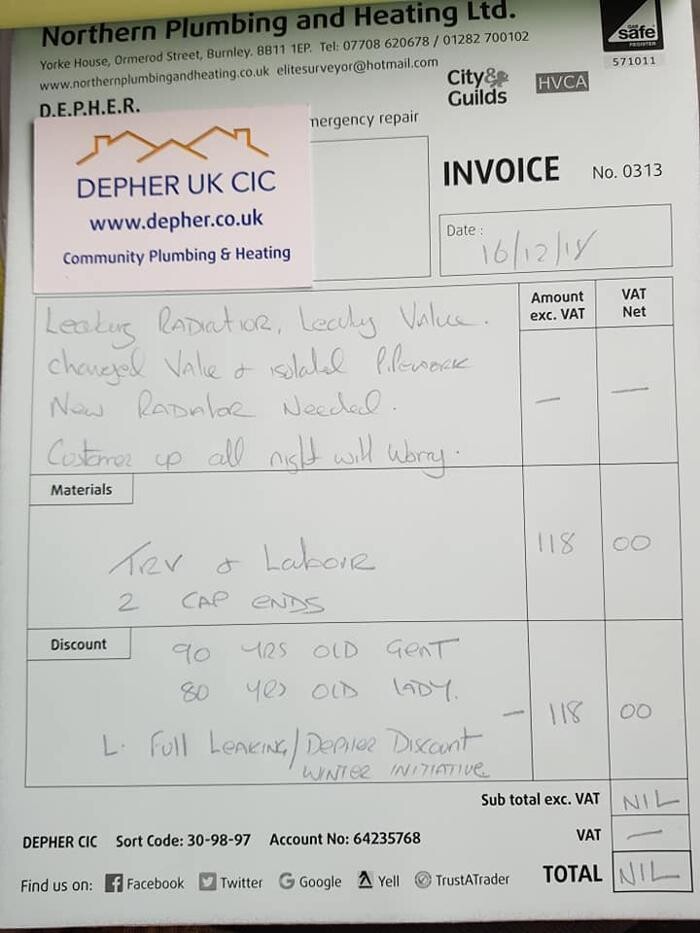 Northern Plumbing and Heating Ltd.
Yorke House, Ormerod Street, Burnley. BB11 1EP. Tel: 07708 620678 / 01282 700102
www.northernplumbingandheating.co.uk elitesurveyor@hotmail.com
GAS
safe
REGISTER
571011
City &
Guilds
HVCA
D.E.P.H.E.R.
mergency repair
DEPHER UK CIC
www.depher.co.uk
Community Plumbing & Heating
INVOICE No. 0313
Date : 16/12/18
Amount
exc. VAT
VAT
Net
Leaking RADIATIOR, Leaky Valve.
changed Valve & isolated Pipework
New RADIATOR Needed.
Customer up all night will Worry.
— —
Materials
TRV & LABOUR
2 CAP ENDS
118 00
Discount
90 YRS OLD GENT
80 YRS OLD LADY.
L. Full LEAKING/DEPHER Discount
WINTER INITIATIVE
— 118 00
Sub total exc. VAT NIL
DEPHER CIC Sort Code: 30-98-97 Account No: 64235768
VAT —
Find us on: Facebook Twitter Google Yell TrustATrader
TOTAL NIL